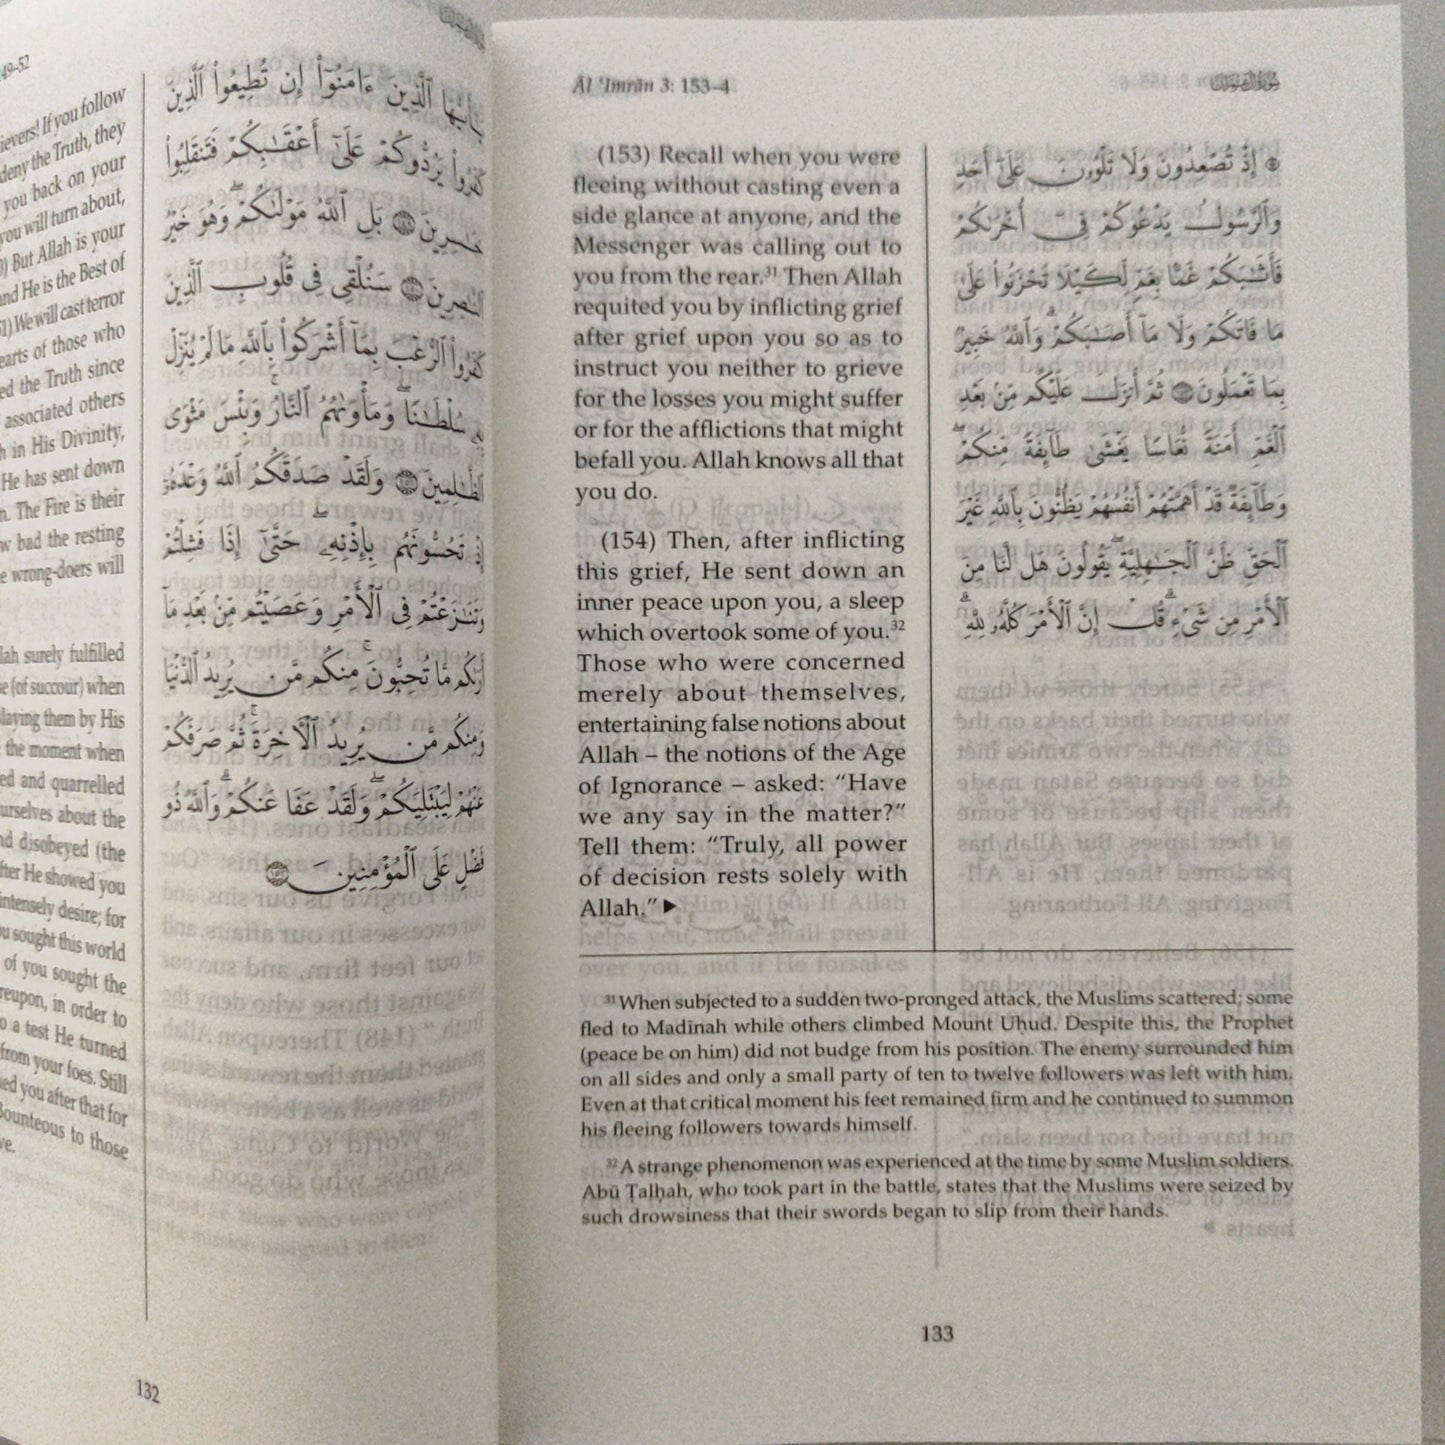 49–52
ievers! If you follow
deny the Truth, they
you back on your
you will turn about,
) But Allah is your
and He is the Best of
51) We will cast terror
earts of those who
ed the Truth since
associated others
h in His Divinity,
He has sent down
n. The Fire is their
w bad the resting
e wrong-doers will
lah surely fulfilled
se (of succour) when
slaying them by His
the moment when
ed and quarrelled
urselves about the
nd disobeyed (the
fter He showed you
intensely desire; for
ou sought this world
of you sought the
reupon, in order to
o a test He turned
from your foes. Still
ed you after that for
Bounteous to those
ve.
يَٰٓأَيُّهَا ٱلَّذِينَ ءَامَنُوٓا۟ إِن تُطِيعُوا۟ ٱلَّذِينَ
كَفَرُوا۟ يَرُدُّوكُمْ عَلَىٰٓ أَعْقَٰبِكُمْ فَتَنقَلِبُوا۟
خَٰسِرِينَ ١٤٩ بَلِ ٱللَّهُ مَوْلَىٰكُمْ ۖ وَهُوَ خَيْرُ
ٱلنَّٰصِرِينَ ١٥٠ سَنُلْقِى فِى قُلُوبِ ٱلَّذِينَ
كَفَرُوا۟ ٱلرُّعْبَ بِمَآ أَشْرَكُوا۟ بِٱللَّهِ مَا لَمْ يُنَزِّلْ
بِهِۦ سُلْطَٰنًا ۖ وَمَأْوَىٰهُمُ ٱلنَّارُ ۚ وَبِئْسَ مَثْوَى
ٱلظَّٰلِمِينَ ١٥١ وَلَقَدْ صَدَقَكُمُ ٱللَّهُ وَعْدَهُۥٓ
إِذْ تَحُسُّونَهُم بِإِذْنِهِۦ ۖ حَتَّىٰٓ إِذَا فَشِلْتُمْ
وَتَنَٰزَعْتُمْ فِى ٱلْأَمْرِ وَعَصَيْتُم مِّنۢ بَعْدِ مَآ
أَرَىٰكُم مَّا تُحِبُّونَ ۚ مِنكُم مَّن يُرِيدُ ٱلدُّنْيَا
وَمِنكُم مَّن يُرِيدُ ٱلْآخِرَةَ ۚ ثُمَّ صَرَفَكُمْ
عَنْهُمْ لِيَبْتَلِيَكُمْ ۖ وَلَقَدْ عَفَا عَنكُمْ ۗ وَٱللَّهُ ذُو
فَضْلٍ عَلَى ٱلْمُؤْمِنِينَ ١٥٢
132
Āl 'Imrān 3: 153–4
(153) Recall when you were
fleeing without casting even a
side glance at anyone, and the
Messenger was calling out to
you from the rear.³¹ Then Allah
requited you by inflicting grief
after grief upon you so as to
instruct you neither to grieve
for the losses you might suffer
or for the afflictions that might
befall you. Allah knows all that
you do.
(154) Then, after inflicting
this grief, He sent down an
inner peace upon you, a sleep
which overtook some of you.³²
Those who were concerned
merely about themselves,
entertaining false notions about
Allah – the notions of the Age
of Ignorance – asked: “Have
we any say in the matter?”
Tell them: “Truly, all power
of decision rests solely with
Allah.” ▶
۞ إِذْ تُصْعِدُونَ وَلَا تَلْوُۥنَ عَلَىٰٓ أَحَدٍ
وَٱلرَّسُولُ يَدْعُوكُمْ فِىٓ أُخْرَىٰكُمْ
فَأَثَٰبَكُمْ غَمًّۢا بِغَمٍّ لِّكَيْلَا تَحْزَنُوا۟ عَلَىٰ
مَا فَاتَكُمْ وَلَا مَآ أَصَٰبَكُمْ ۗ وَٱللَّهُ خَبِيرٌۢ
بِمَا تَعْمَلُونَ ١٥٣ ثُمَّ أَنزَلَ عَلَيْكُم مِّنۢ بَعْدِ
ٱلْغَمِّ أَمَنَةً نُّعَاسًا يَغْشَىٰ طَآئِفَةً مِّنكُمْ ۖ
وَطَآئِفَةٌ قَدْ أَهَمَّتْهُمْ أَنفُسُهُمْ يَظُنُّونَ بِٱللَّهِ غَيْرَ
ٱلْحَقِّ ظَنَّ ٱلْجَٰهِلِيَّةِ ۖ يَقُولُونَ هَل لَّنَا مِنَ
ٱلْأَمْرِ مِن شَىْءٍ ۗ قُلْ إِنَّ ٱلْأَمْرَ كُلَّهُۥ لِلَّهِ ۗ
³¹ When subjected to a sudden two-pronged attack, the Muslims scattered; some
fled to Madinah while others climbed Mount Uḥud. Despite this, the Prophet
(peace be on him) did not budge from his position. The enemy surrounded him
on all sides and only a small party of ten to twelve followers was left with him.
Even at that critical moment his feet remained firm and he continued to summon
his fleeing followers towards himself.
³² A strange phenomenon was experienced at the time by some Muslim soldiers.
Abū Ṭalḥah, who took part in the battle, states that the Muslims were seized by
such drowsiness that their swords began to slip from their hands.
133